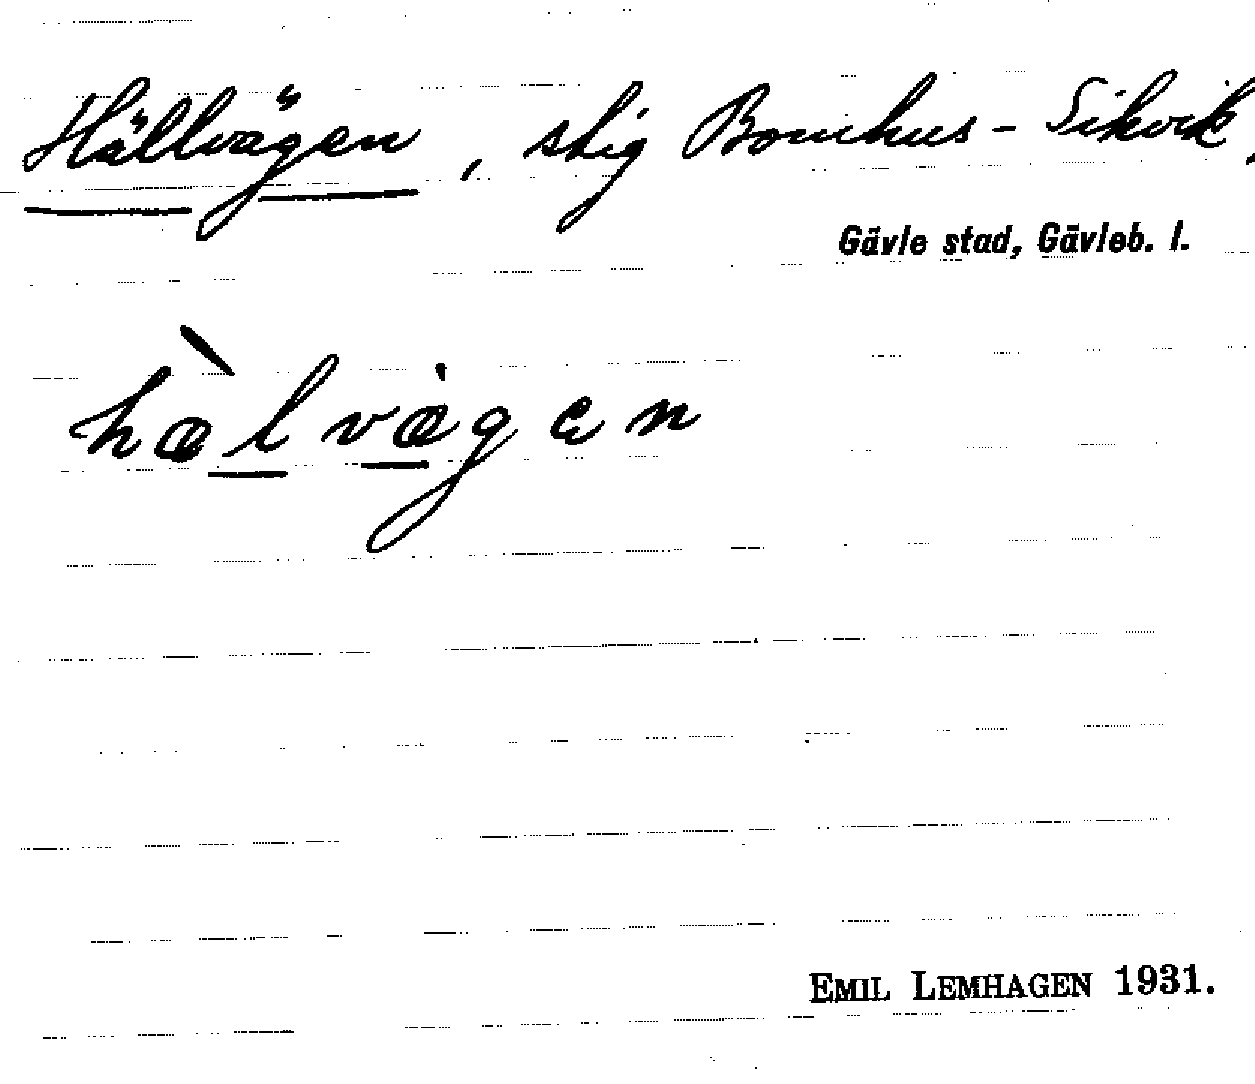 Hällvägen, stig Bomhus - Sikvik.
Gävle stad, Gävleb. l.
hæ̀lvægen
EMIL LEMHAGEN 1931.